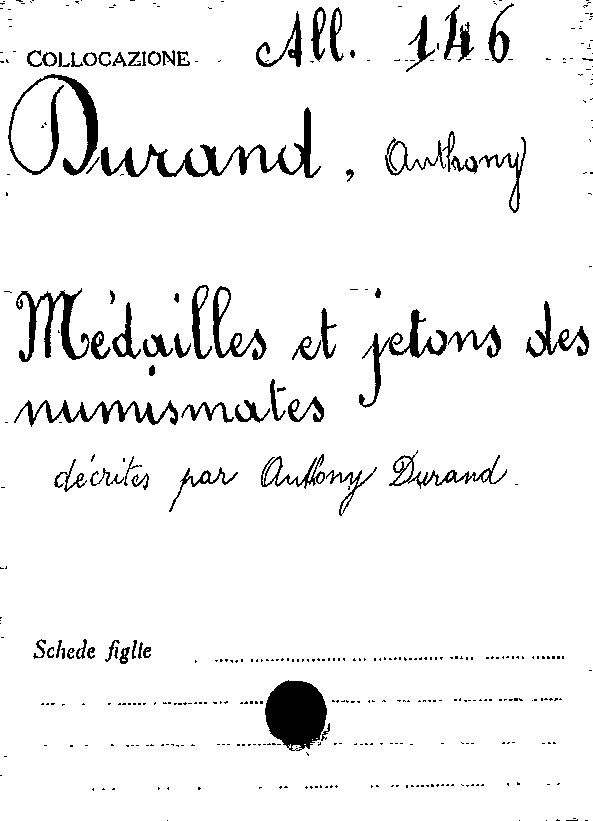 COLLOCAZIONE All. 146
Durand, Anthony
Médailles et jetons des
numismates
décrites par Anthony Durand.
Schede figlie